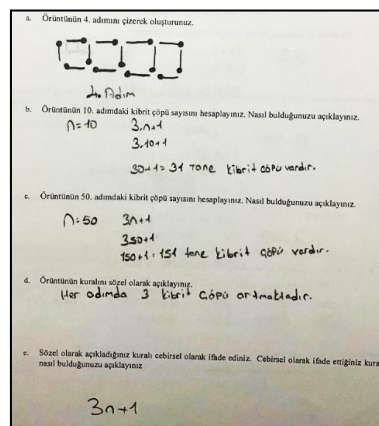 a. Örüntünün 4. adımını çizerek oluşturunuz.
4. Adım
b. Örüntünün 10. adımdaki kibrit çöpü sayısını hesaplayınız. Nasıl bulduğunuzu açıklayınız.
n=10 3.n+1
3.10+1
30+1=31 tane kibrit çöpü vardır.
c. Örüntünün 50. adımdaki kibrit çöpü sayısını hesaplayınız. Nasıl bulduğunuzu açıklayınız.
n=50 3n+1
3.50+1
150+1=151 tane kibrit çöpü vardır.
d. Örüntünün kuralını sözel olarak açıklayınız.
Her adımda 3 kibrit çöpü artmaktadır.
e. Sözel olarak açıkladığınız kuralı cebirsel olarak ifade ediniz. Cebirsel olarak ifade ettiğiniz kura
nasıl bulduğunuzu açıklayınız
3n+1